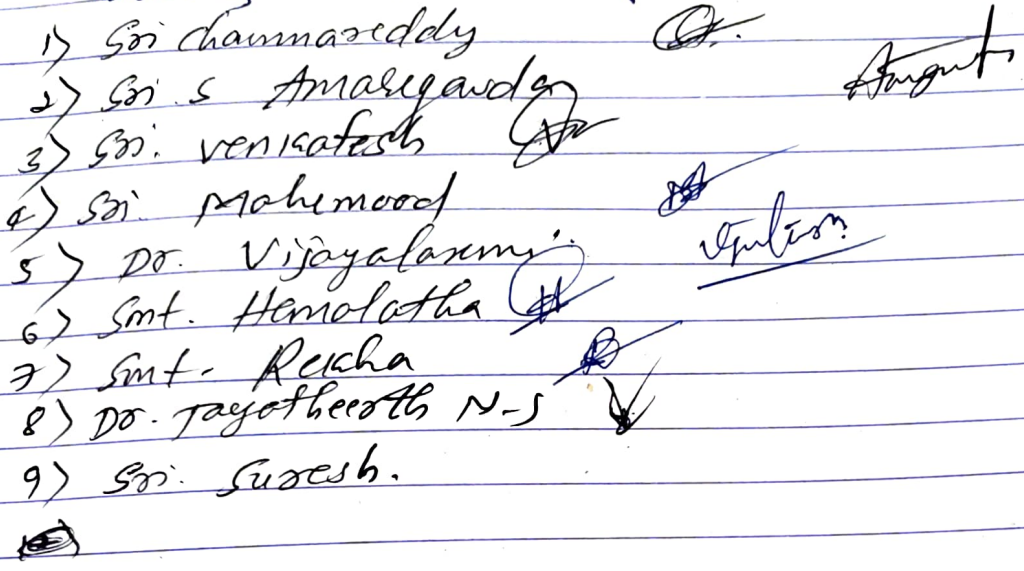 1) Sri Channareddy
2) Sri S Amaregowda
3) Sri. Venkatesh
4) Sri. Mahemood
5) Dr. Vijayalaxmi
6) Smt. Hemalatha
7) Smt. Rekha
8) Dr. Jayatheerth N-S
9) Sri. Suresh.